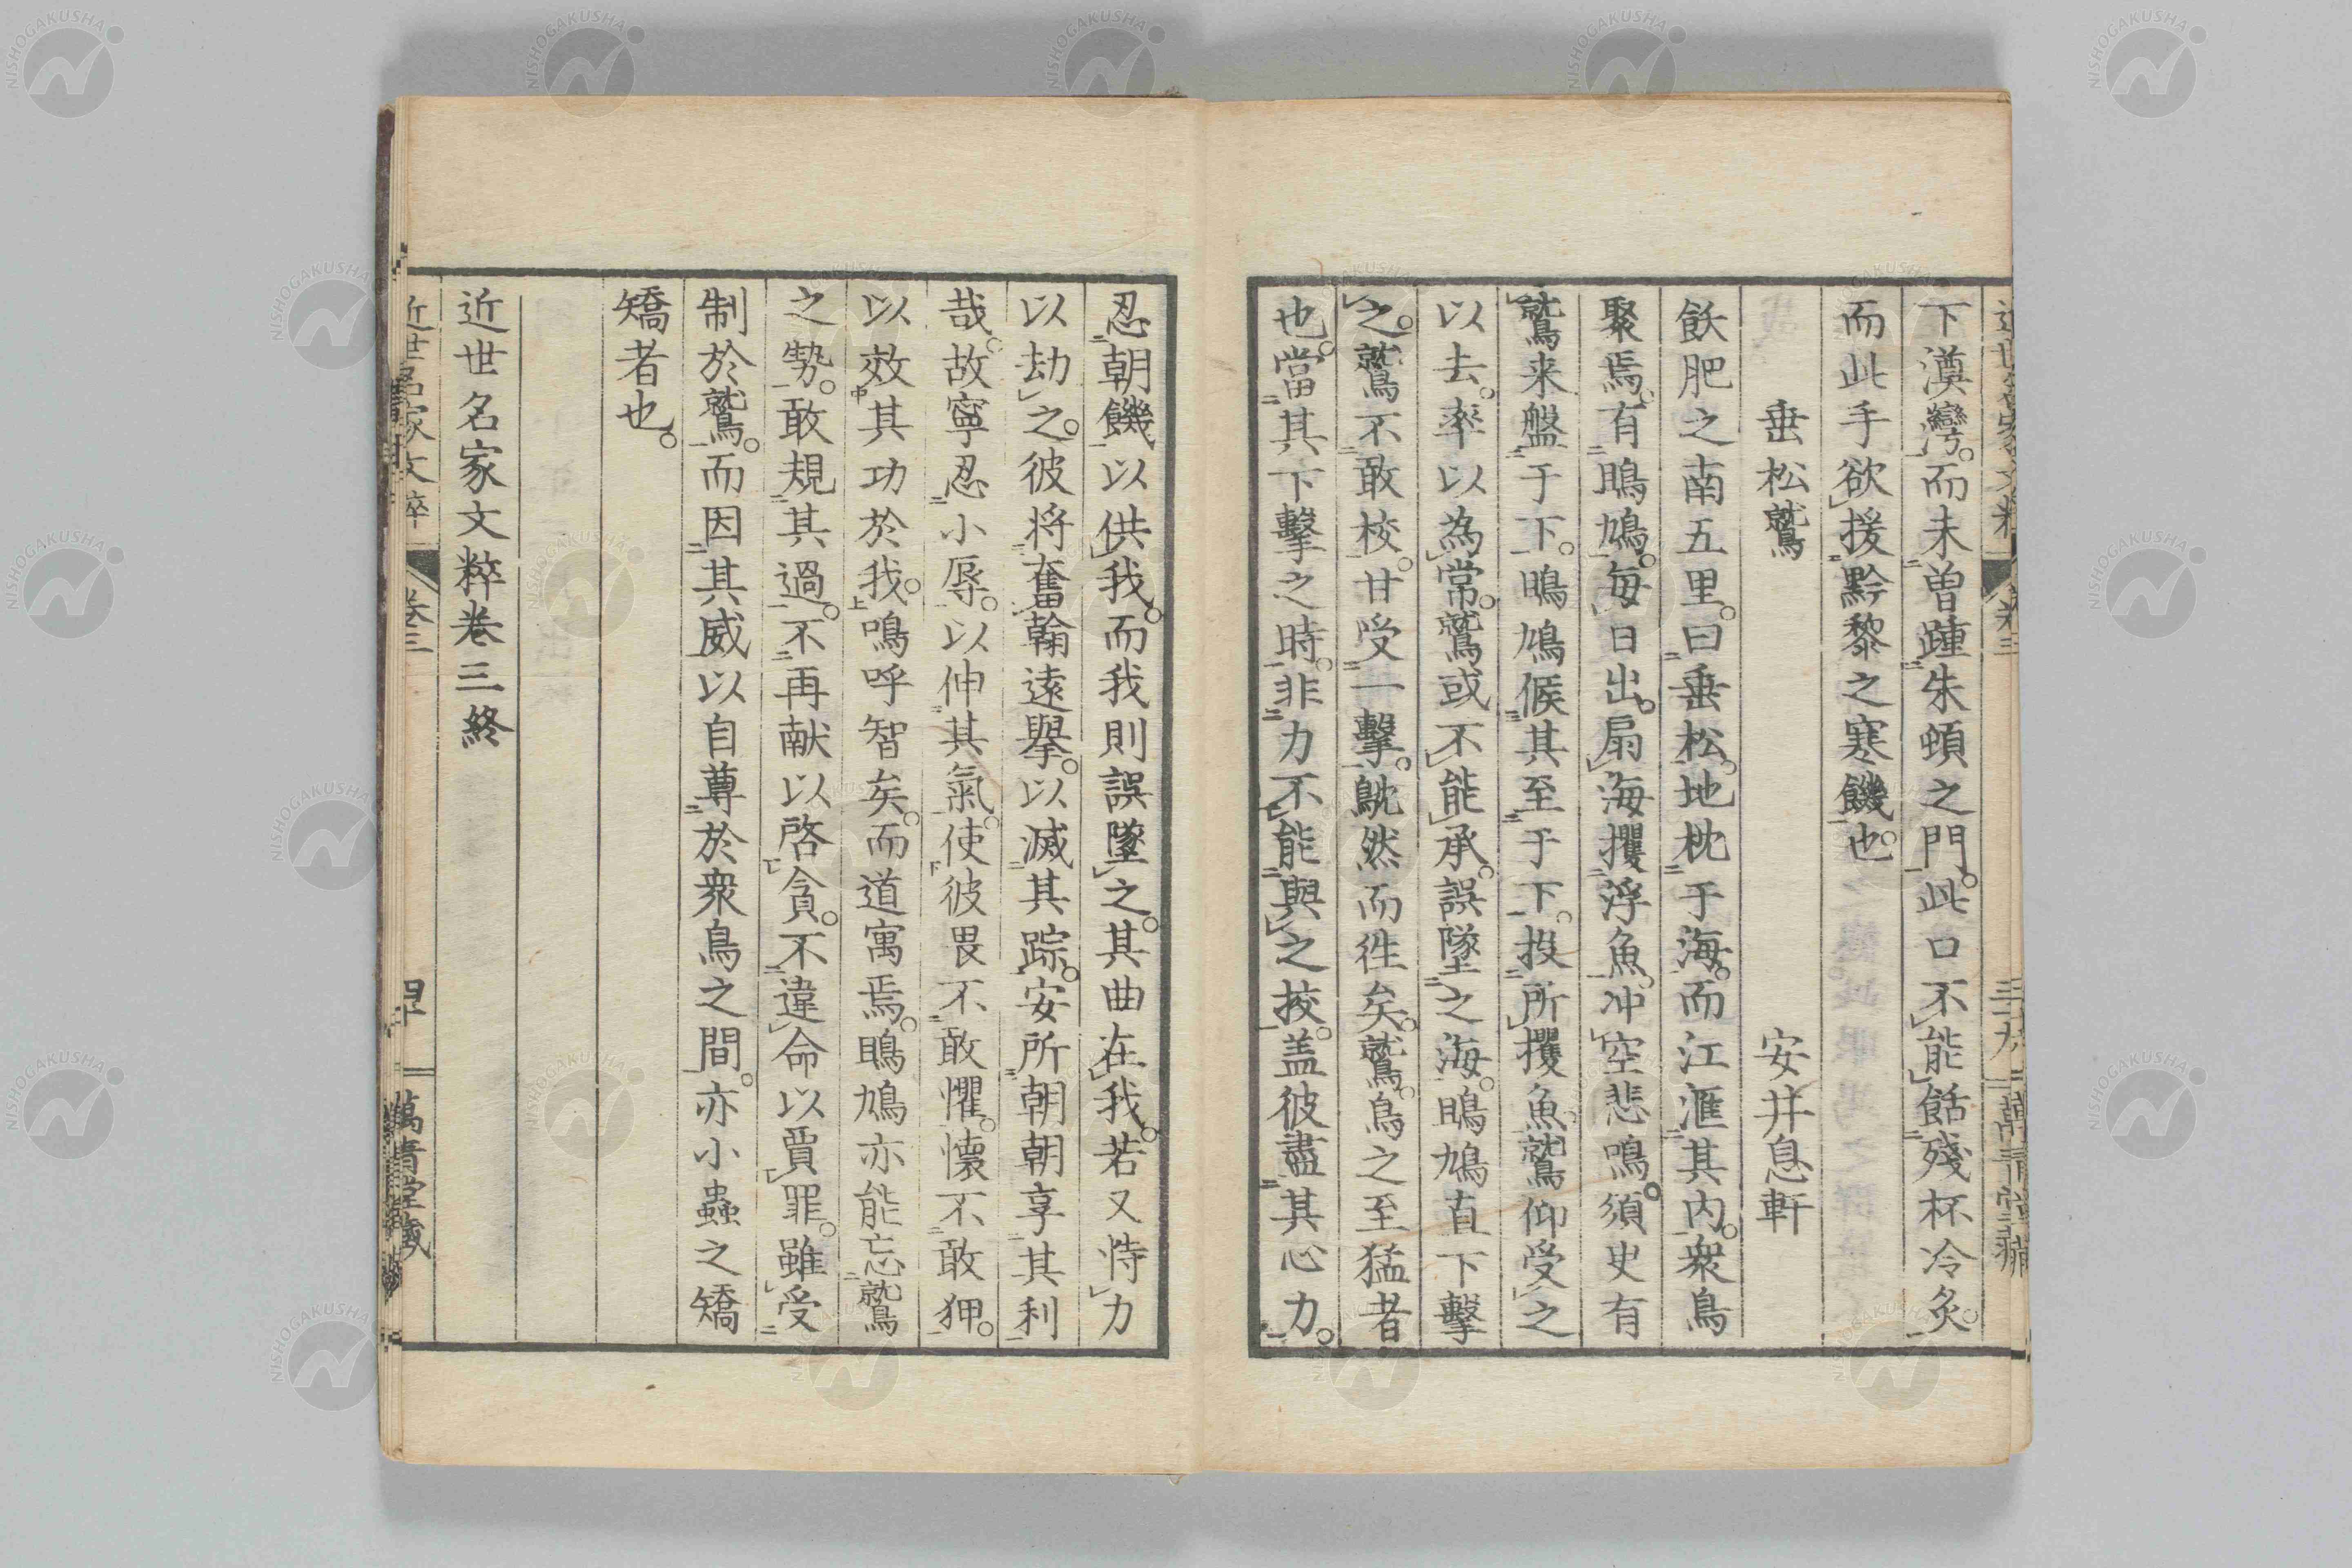 下漢灣。而未曽踵朱頓之門。此口不能餂殘杯冷炙。
而此手欲援黔黎之寒饑也。
垂松鷲　安井息軒
飫肥之南五里。曰垂松。地枕于海。而江滙其内。衆鳥
聚焉。有鵙鳩。毎日出。扇海攫浮魚。冲空悲鳴。須史有
鷲来盤于下。鵙鳩候其至于下。投所攫魚。鷲仰受之
以去。率以為常。鷲或不能承。誤墜之海。鵙鳩直下擊
之。鷲不敢校。甘受一擊。鴥然而徃矣。鷲。鳥之至猛者
也。當其下擊之時。非力不能與之挍。盖彼盡其心力。
忍朝饑以供我。而我則誤墜之。其曲在我。若又恃力
以劫之。彼将奮翰遠擧。以滅其踪。安所朝朝享其利
哉。故寧忍小辱。以伸其氣。使彼畏不敢懼。懷不敢狎。
以效其功於我。鳴呼智矣。而道寓焉。鵙鳩亦能忘鷲
之勢。敢規其過。不再献以啓貪。不違命以賈罪。雖受
制於鷲。而因其威以自尊於衆鳥之間。亦小蟲之矯
矯者也。
近世名家文粹卷三終
近世名家文粹　卷三　萬青堂藏